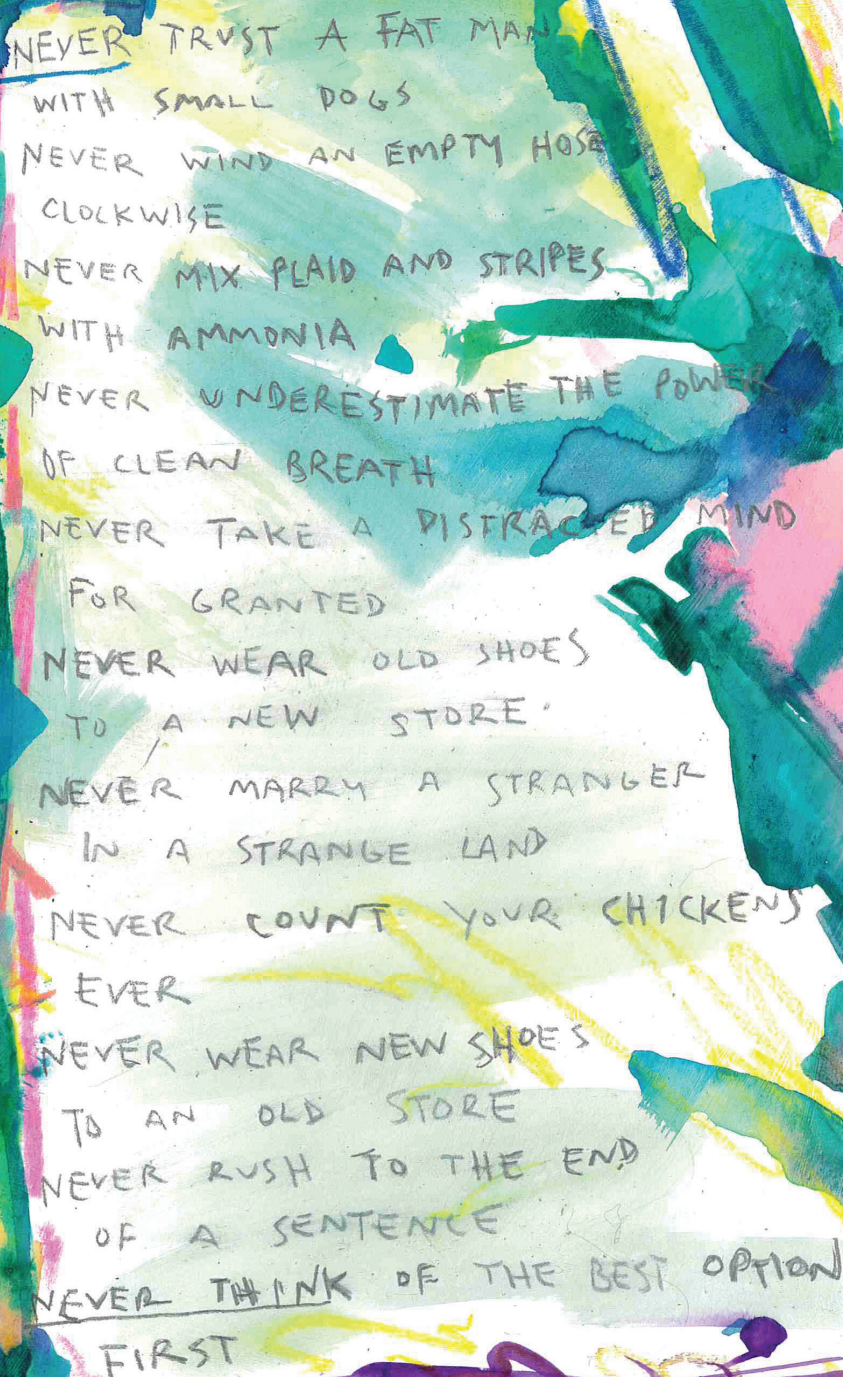 NEVER TRUST A FAT MAN
WITH SMALL DOGS
NEVER WIND AN EMPTY HOSE
CLOCKWISE
NEVER MIX PLAID AND STRIPES
WITH AMMONIA
NEVER UNDERESTIMATE THE POWER
OF CLEAN BREATH
NEVER TAKE A DISTRACTED MIND
FOR GRANTED
NEVER WEAR OLD SHOES
TO A NEW STORE
NEVER MARRY A STRANGER
IN A STRANGE LAND
NEVER COUNT YOUR CHICKENS
EVER
NEVER WEAR NEW SHOES
TO AN OLD STORE
NEVER RUSH TO THE END
OF A SENTENCE
NEVER THINK OF THE BEST OPTION
FIRST